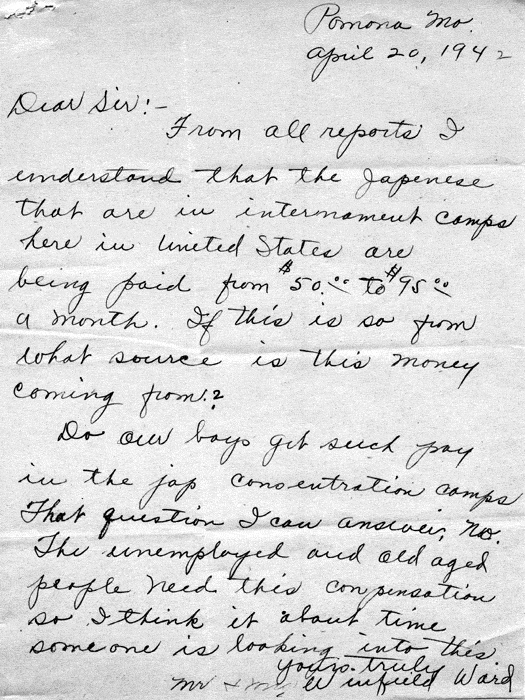 Pomona Mo.
April 20, 1942
Dear Sir:-
From all reports I
understand that the Japenese
that are in internament camps
here in United States are
being paid from $50.00 to $95.00
a month. If this is so from
what source is this money
coming from.?
Do our boys get such pay
in the jap concentration camps
That question I can answer, no.
The unemployed and old aged
people need this conpensation
so I think it about time
someone is looking into this
yours truly
Mr & Mrs Winfield Ward